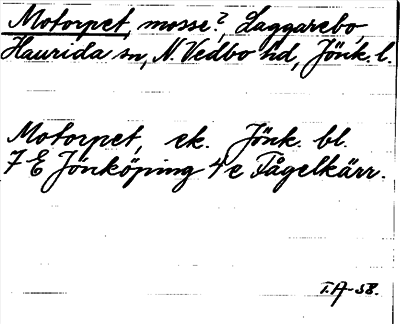 Motorpet, mosse? Laggarebo,
Haurida sn, N. Vedbo hd, Jönk. l.
Motorpet, ek. Jönk. bl.
7 E Jönköping 4 e Fågelkärr.
T.A-58.